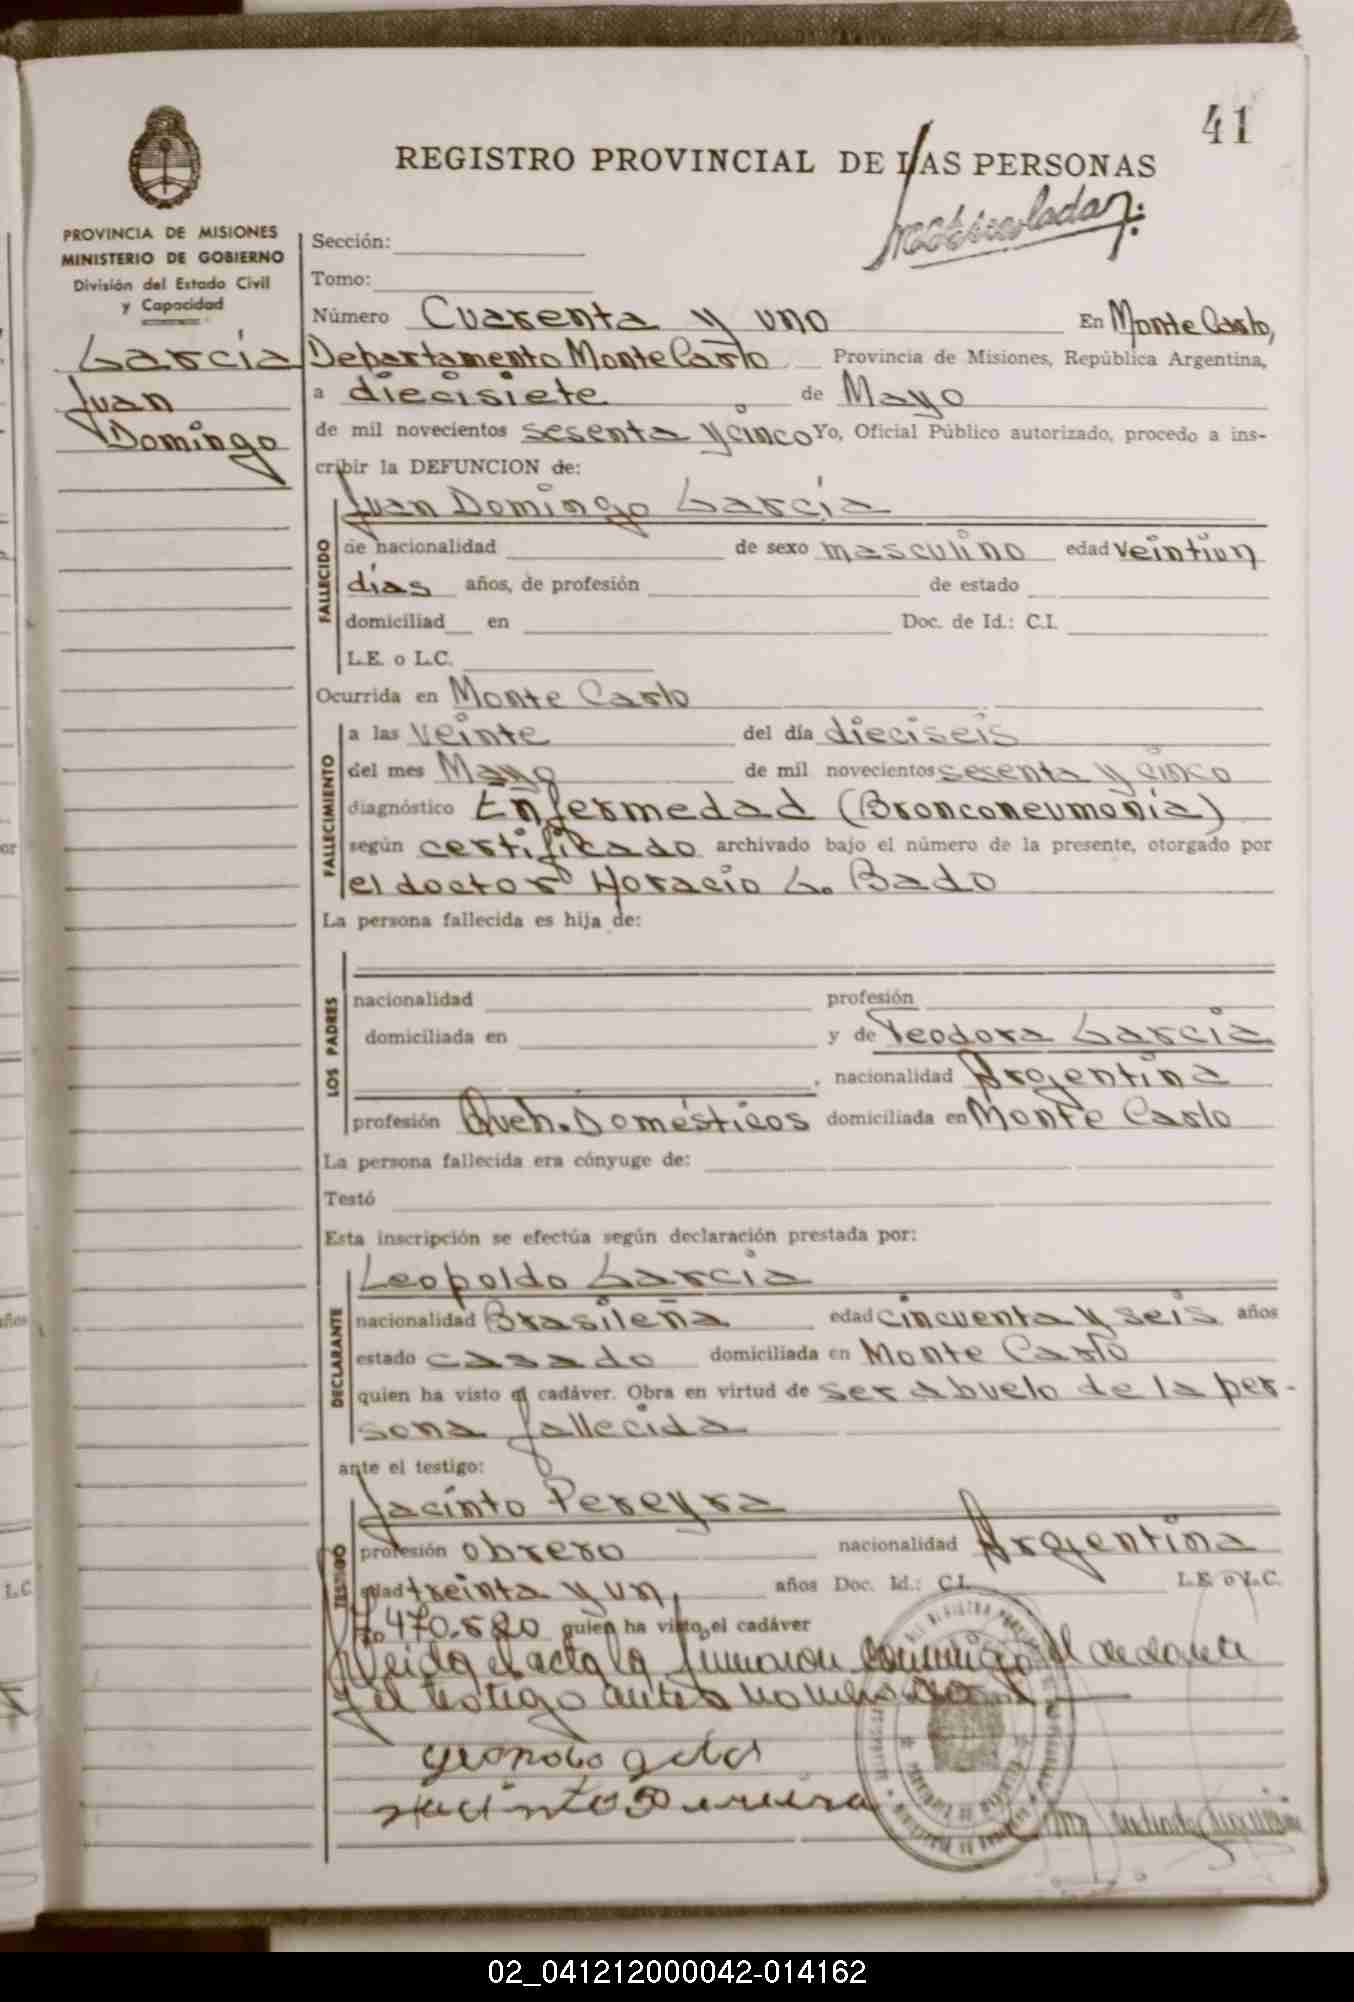 41
REGISTRO PROVINCIAL DE LAS PERSONAS
PROVINCIA DE MISIONES
MINISTERIO DE GOBIERNO
División del Estado Civil
y Capacidad
García
Juan
Domingo
Sección:
Tomo:
Número Cuarenta y uno En Monte Carlo,
Departamento Monte Carlo Provincia de Misiones, República Argentina,
a diecisiete de Mayo
de mil novecientos sesenta y cinco Yo, Oficial Público autorizado, procedo a ins-
cribir la DEFUNCION de:
FALLECIDO
Juan Domingo García
de nacionalidad de sexo masculino edad veintiun
días años, de profesión de estado
domiciliad en Doc. de Id.: C.I.
L.E. o L.C.
Ocurrida en Monte Carlo
FALLECIMIENTO
a las veinte del día dieciseis
del mes Mayo de mil novecientos sesenta y cinco
diagnóstico Enfermedad (Bronconeumonía)
según certificado archivado bajo el número de la presente, otorgado por
el doctor Horacio G. Bado
La persona fallecida es hija de:
LOS PADRES
nacionalidad profesión
domiciliada en y de Teodora García
, nacionalidad Argentina
profesión Queh. Domésticos domiciliada en Monte Carlo
La persona fallecida era cónyuge de:
Testó
Esta inscripción se efectúa según declaración prestada por:
DECLARANTE
Leopoldo García
nacionalidad Brasileña edad cincuenta y seis años
estado casado domiciliada en Monte Carlo
quien ha visto el cadáver. Obra en virtud de ser abuelo de la per-
sona fallecida
ante el testigo:
TESTIGO
Jacinto Pereyra
profesión obrero nacionalidad Argentina
edad treinta y un años Doc. Id.: C.I. L.E. o L.C.
7.470.520 quien ha visto el cadáver
Leída el acta la firmaron conmigo el declarante
y el testigo antes nombrado
02_041212000042-014162